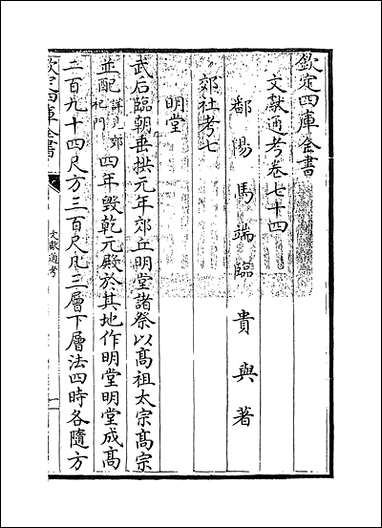 欽定四庫全書
文獻通考卷七十四
鄱陽馬端臨貴與著
郊社考七
明堂
武后臨朝垂拱元年郊丘明堂諸祭以高祖太宗高宗
並配詳見郊祀門四年毀乾元殿於其地作明堂明堂成高
二百九十四尺方三百尺凡三層下層法四時各隨方
欽定四庫全書
文獻通考
一